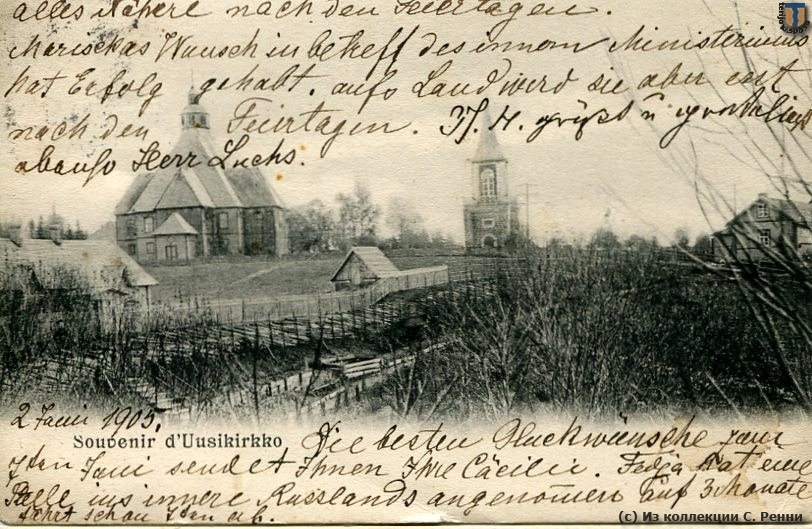 alles Nähere nach den Feiertagen.
Marischkas Wunsch in betreff des innern Ministeriums
hat Erfolg gehabt. aufs Land wird sie aber erst
nach den Feiertagen. grüsst u
ebenso Herr Luchs.
2 Juni 1905.
Souvenir d'Uusikirkko
Die besten Glückwünsche zum
Juni sendet Ihnen Ihre Cäcilie. Fedja hat eine
Stelle ins innere Russlands angenommen auf 3 Monate
fährt schon ab.
(c) Из коллекции С. Ренни